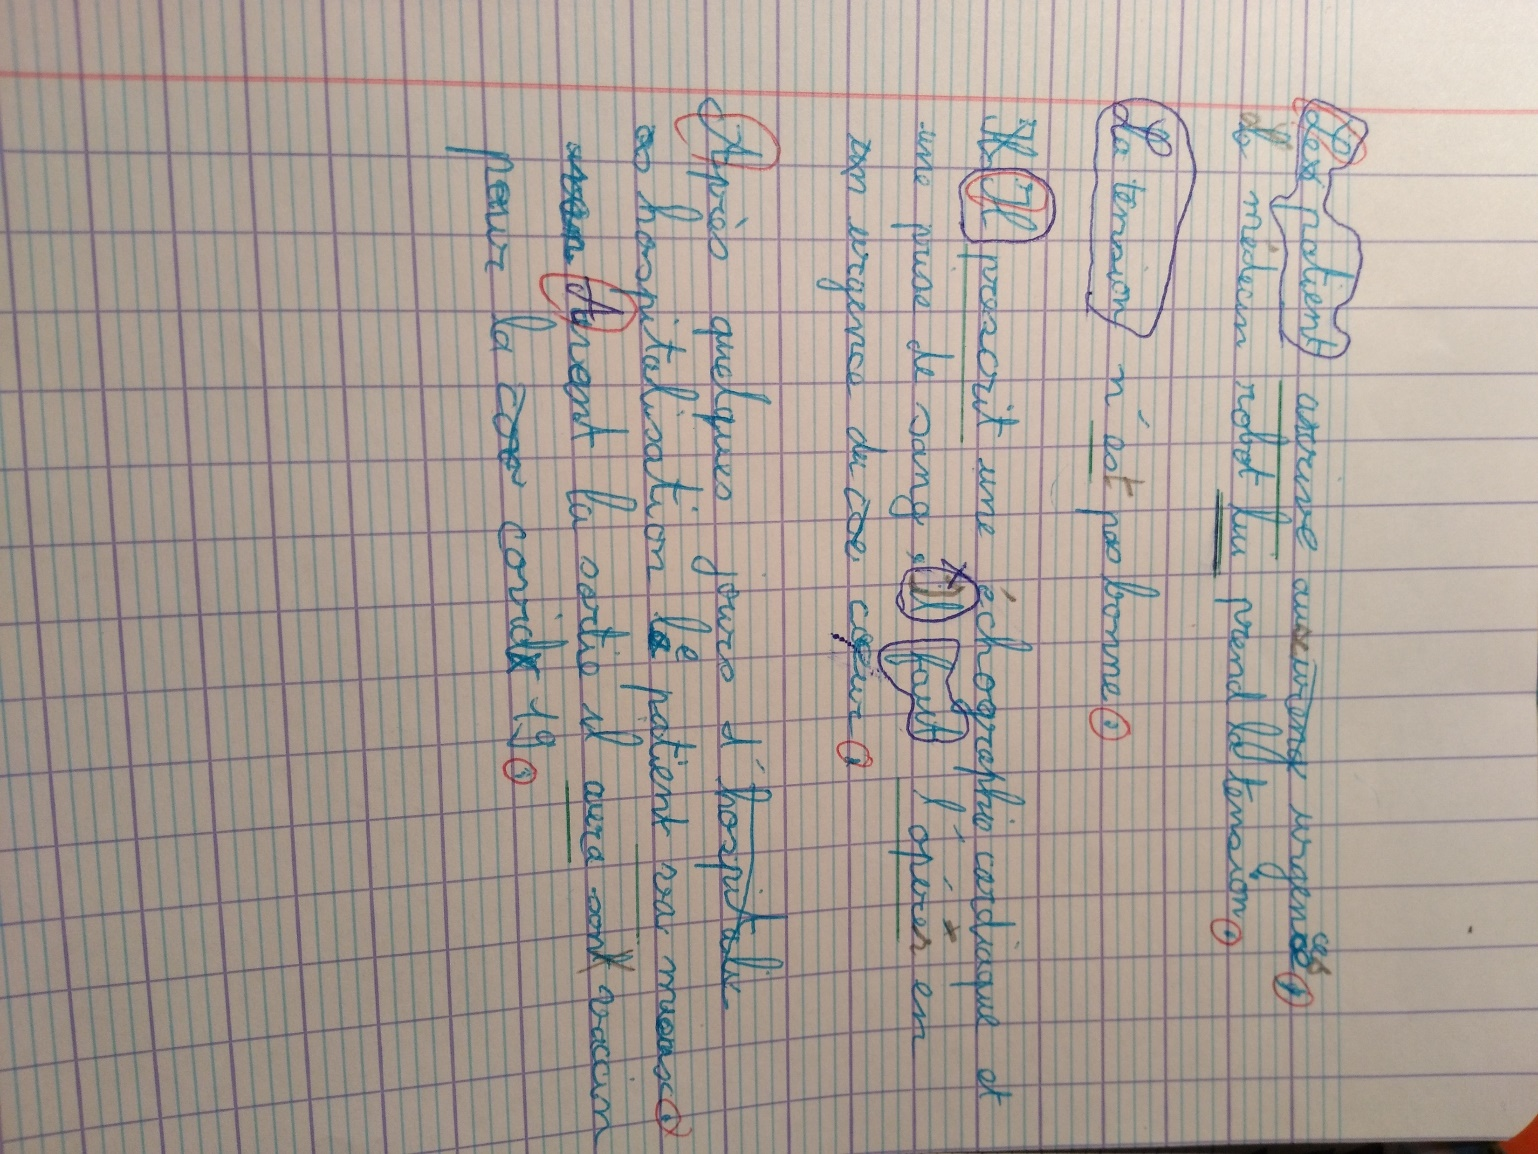 Le patient arrive aux urgences.
Le médecin robot lui prend la tension.
La tension n'est pas bonne.
Il prescrit une échographie cardiaque et
une prise de sang. Il faut l'opérer en
urgence du coeur.
Après quelques jours d'hospitali-
hospitalisation le patient va mieux.
Avant la sortie il aura son vaccin
pour la covid 19.